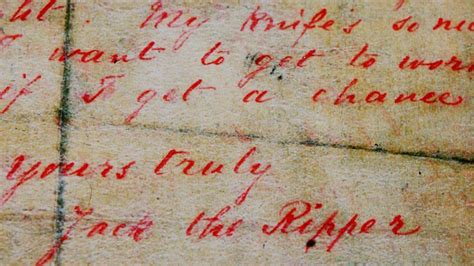 ht. My knife's so ni
I want to get to wor
if I get a chance
yours truly
Jack the Ripper